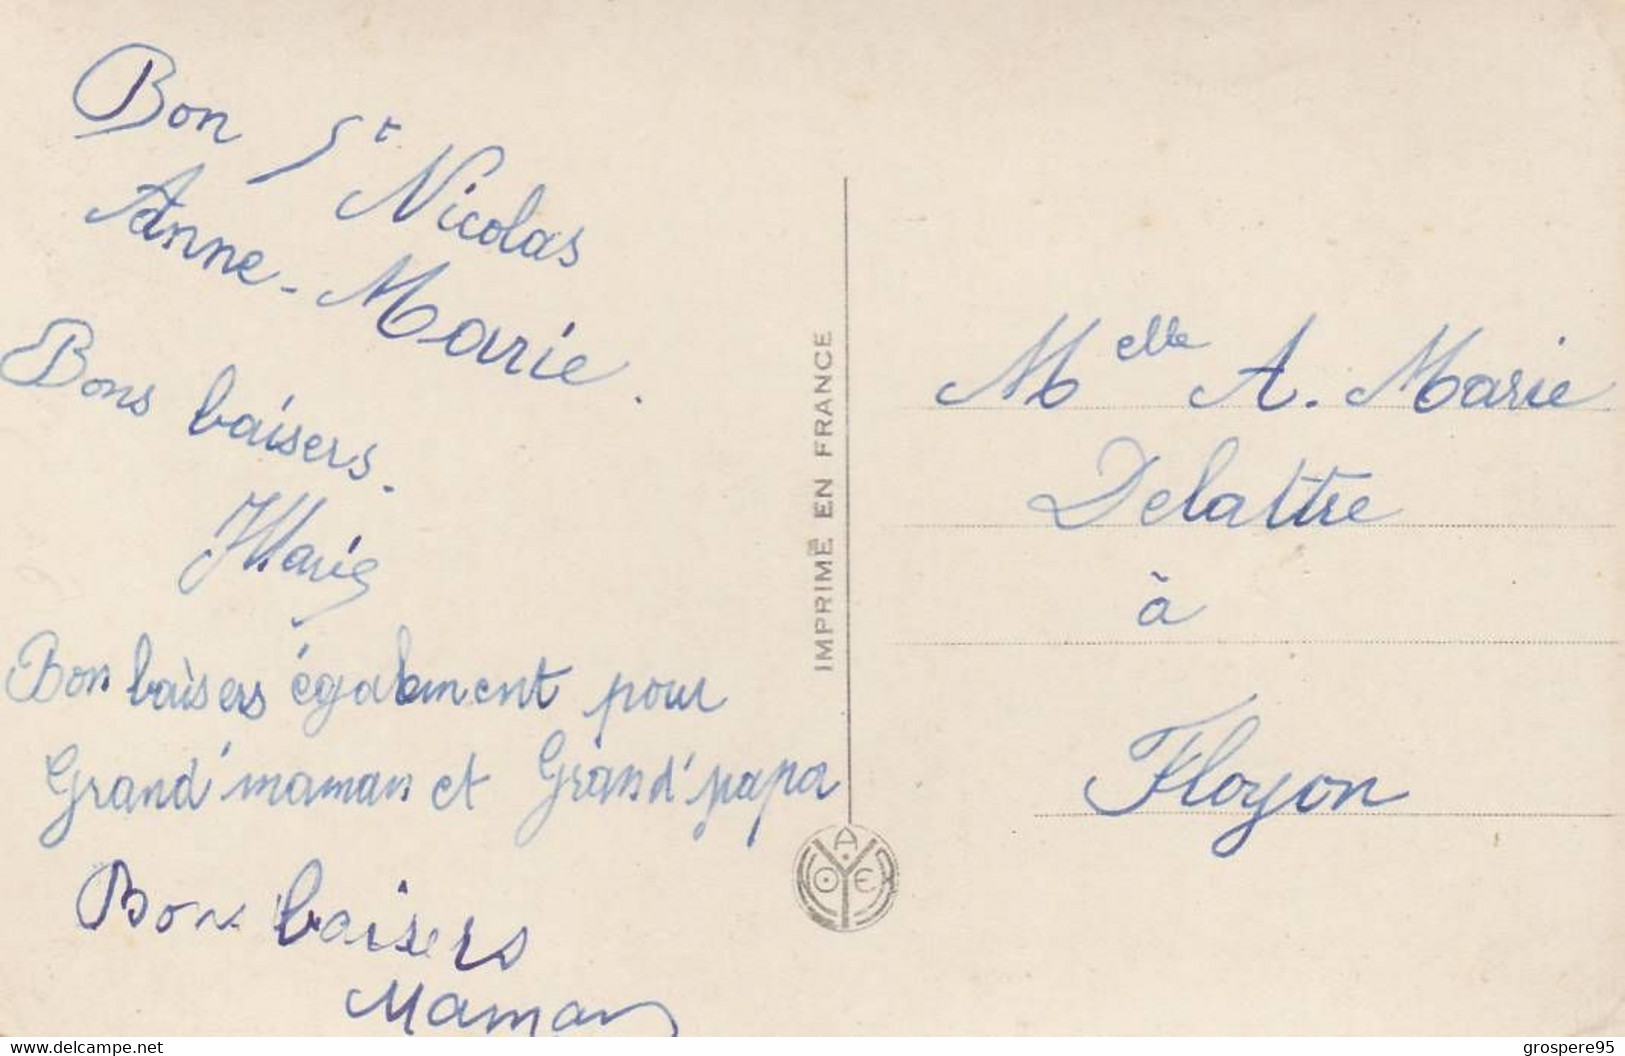 Bon St Nicolas
Anne-Marie.
Bons baisers.
Marie
Bon baisers également pour
Grand'maman et Grand'papa
Bon baisers
Maman
IMPRIMÉ EN FRANCE
Melle A. Marie
Delattre
à
Floyon
www.delcampe.net
grospere95